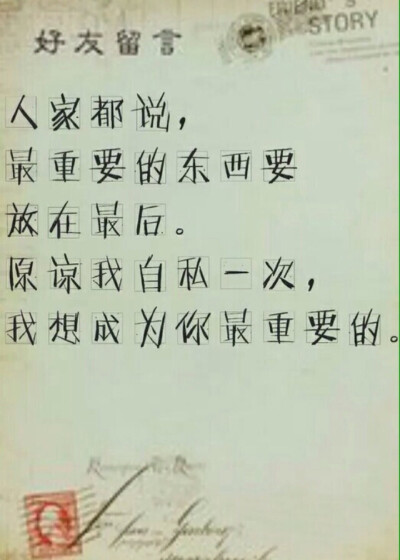 好友留言
FRIEND'S
STORY
人家都说，
最重要的东西要
放在最后。
原谅我自私一次，
我想成为你最重要的。